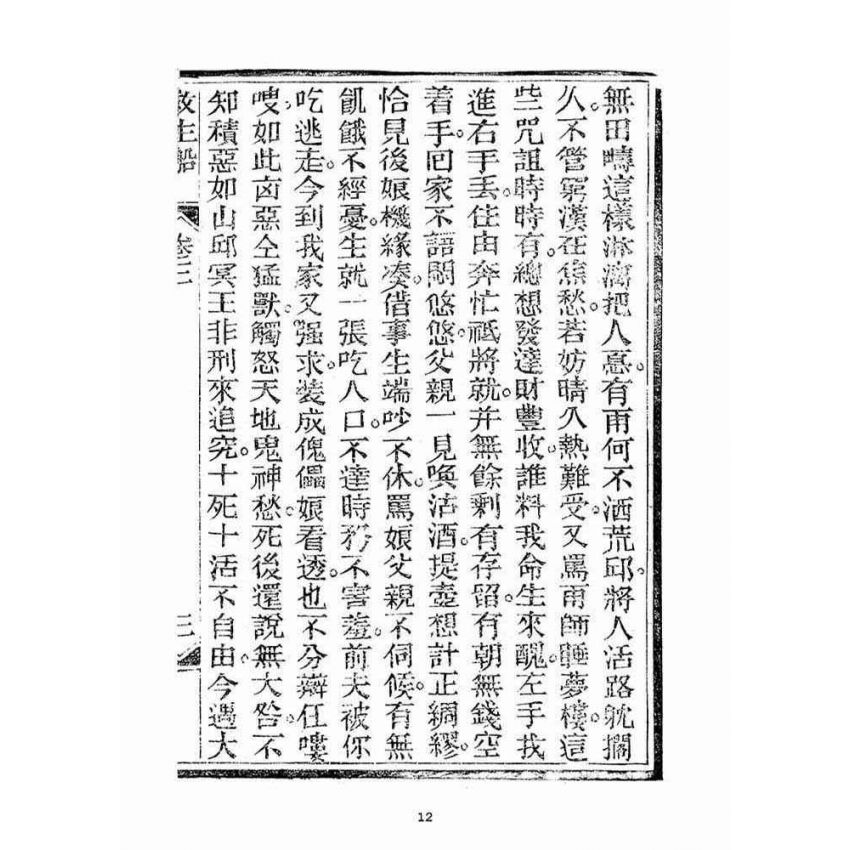 無田疇這樣淋漓把人慝。有雨何不洒荒邱。將人活路躭擱
久不管窮漢在焦愁。若妨晴久熱難受。又罵雨師睡夢樓。這
些咒詛時時有。總想發達財豐收。誰料我命生來醜。左手找
進右手丟。住由奔忙祗將就。并無餘剩有存留。有朝無錢空
着手。回家不語悶悠悠。父親一見喚沽酒。提壺想計正綢繆。
恰見後娘機緣湊。借事生端吵不休。罵娘父親不伺候。有無
飢餓不經憂。生就一張吃人口。不達時務不害羞。前夫被你
吃逃走。今到我家又强求。裝成傀儡娘看透。也不分辯任嘍
嗖。如此凶惡仝猛獸。觸怒天地鬼神愁。死後還說無大咎。不
知積惡如山邱。冥王非刑來追究。十死十活不自由。今遇大
救生船 卷三 三
12